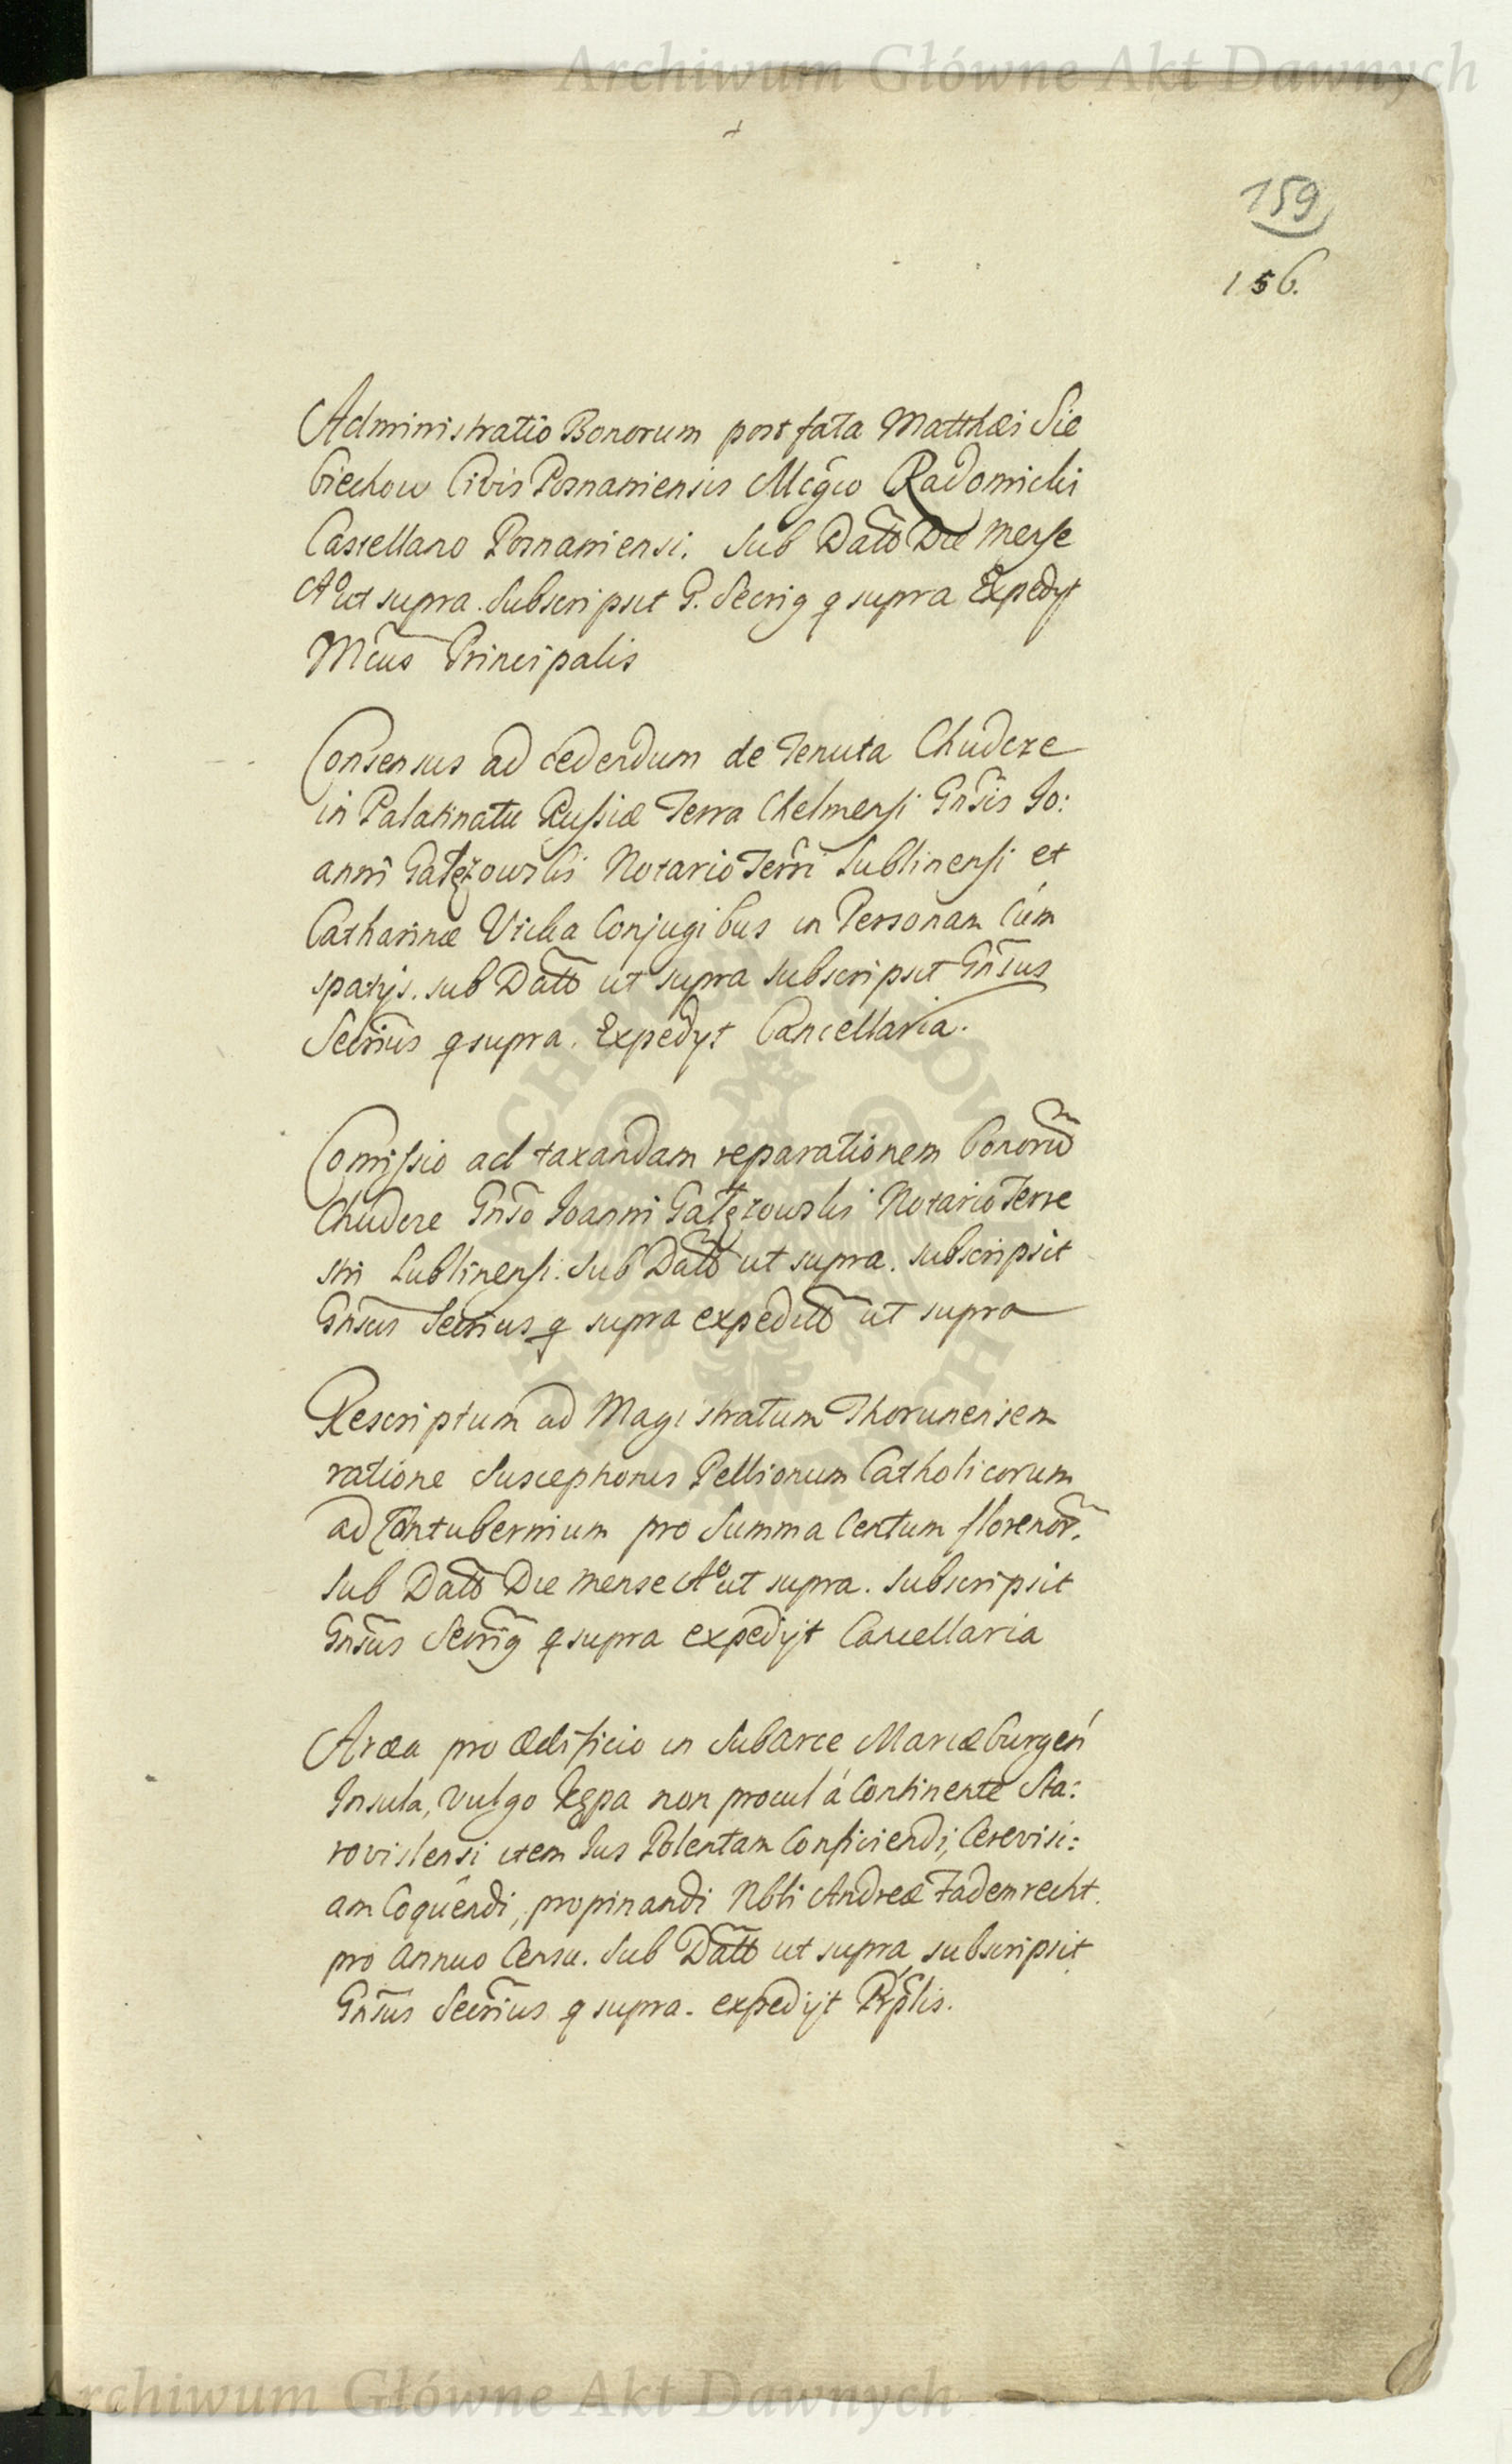 Archiwum Główne Akt Dawnych
159
156.
Administratio Bonorum post fata Matthæi Sie
biechow Civis Posnaniensis Mcgco Radomicki
Castellano Posnaniensi. Sub Datō Die Mense
Aº ut supra. Subscripsit G. Secrig q supra Expedyt
Mcūs Principalis
Consensus ad cedendum de Tenuta Chudcze
in Palatinatu Russiæ Terra Chelmensi Gnsis Jo:
anni Gałęzowski Notario Terrī Lublinensi et
Catharinæ Conjugibus in Personam Cúm
spatijs. sub Dattō ut supra subscripsit Gnsus
Secrīus q supra. Expedyt Cancellaria.
Comissio ad taxandam reparationem bonorū
Chudcze Gnso Joanni Gałęzowski Notario Terre
stri Lublinensi. Sub Dattō ut supra. subscripsit
Gnsus Secrius q supra expeditō ut supra
Rescriptum ad Magistratum Thorunensem
ratione Susceptionis Pellionum Catholicorum
ad Contubernium pro Summa Centum florenor.
Sub Dattō Die mense Aº ut supra. Subscripsit
Gnsus Secrīg q supra expedijt Cancellaria
Aræa pro ædificio in Subarce Mariæburgeń
Insula, vulgo Kępa non procul á Continente Sta:
rovislensi item Jus Polentam Conficiendi, Cerevisi:
am Coquendi, propinandi Nbli Andreæ Fademrecht.
pro Annuo Censu. Sub Dattō ut supra subscripsit
Gnsus Secrīus q supra. expedijt Prplis.
Archiwum Główne Akt Dawnych